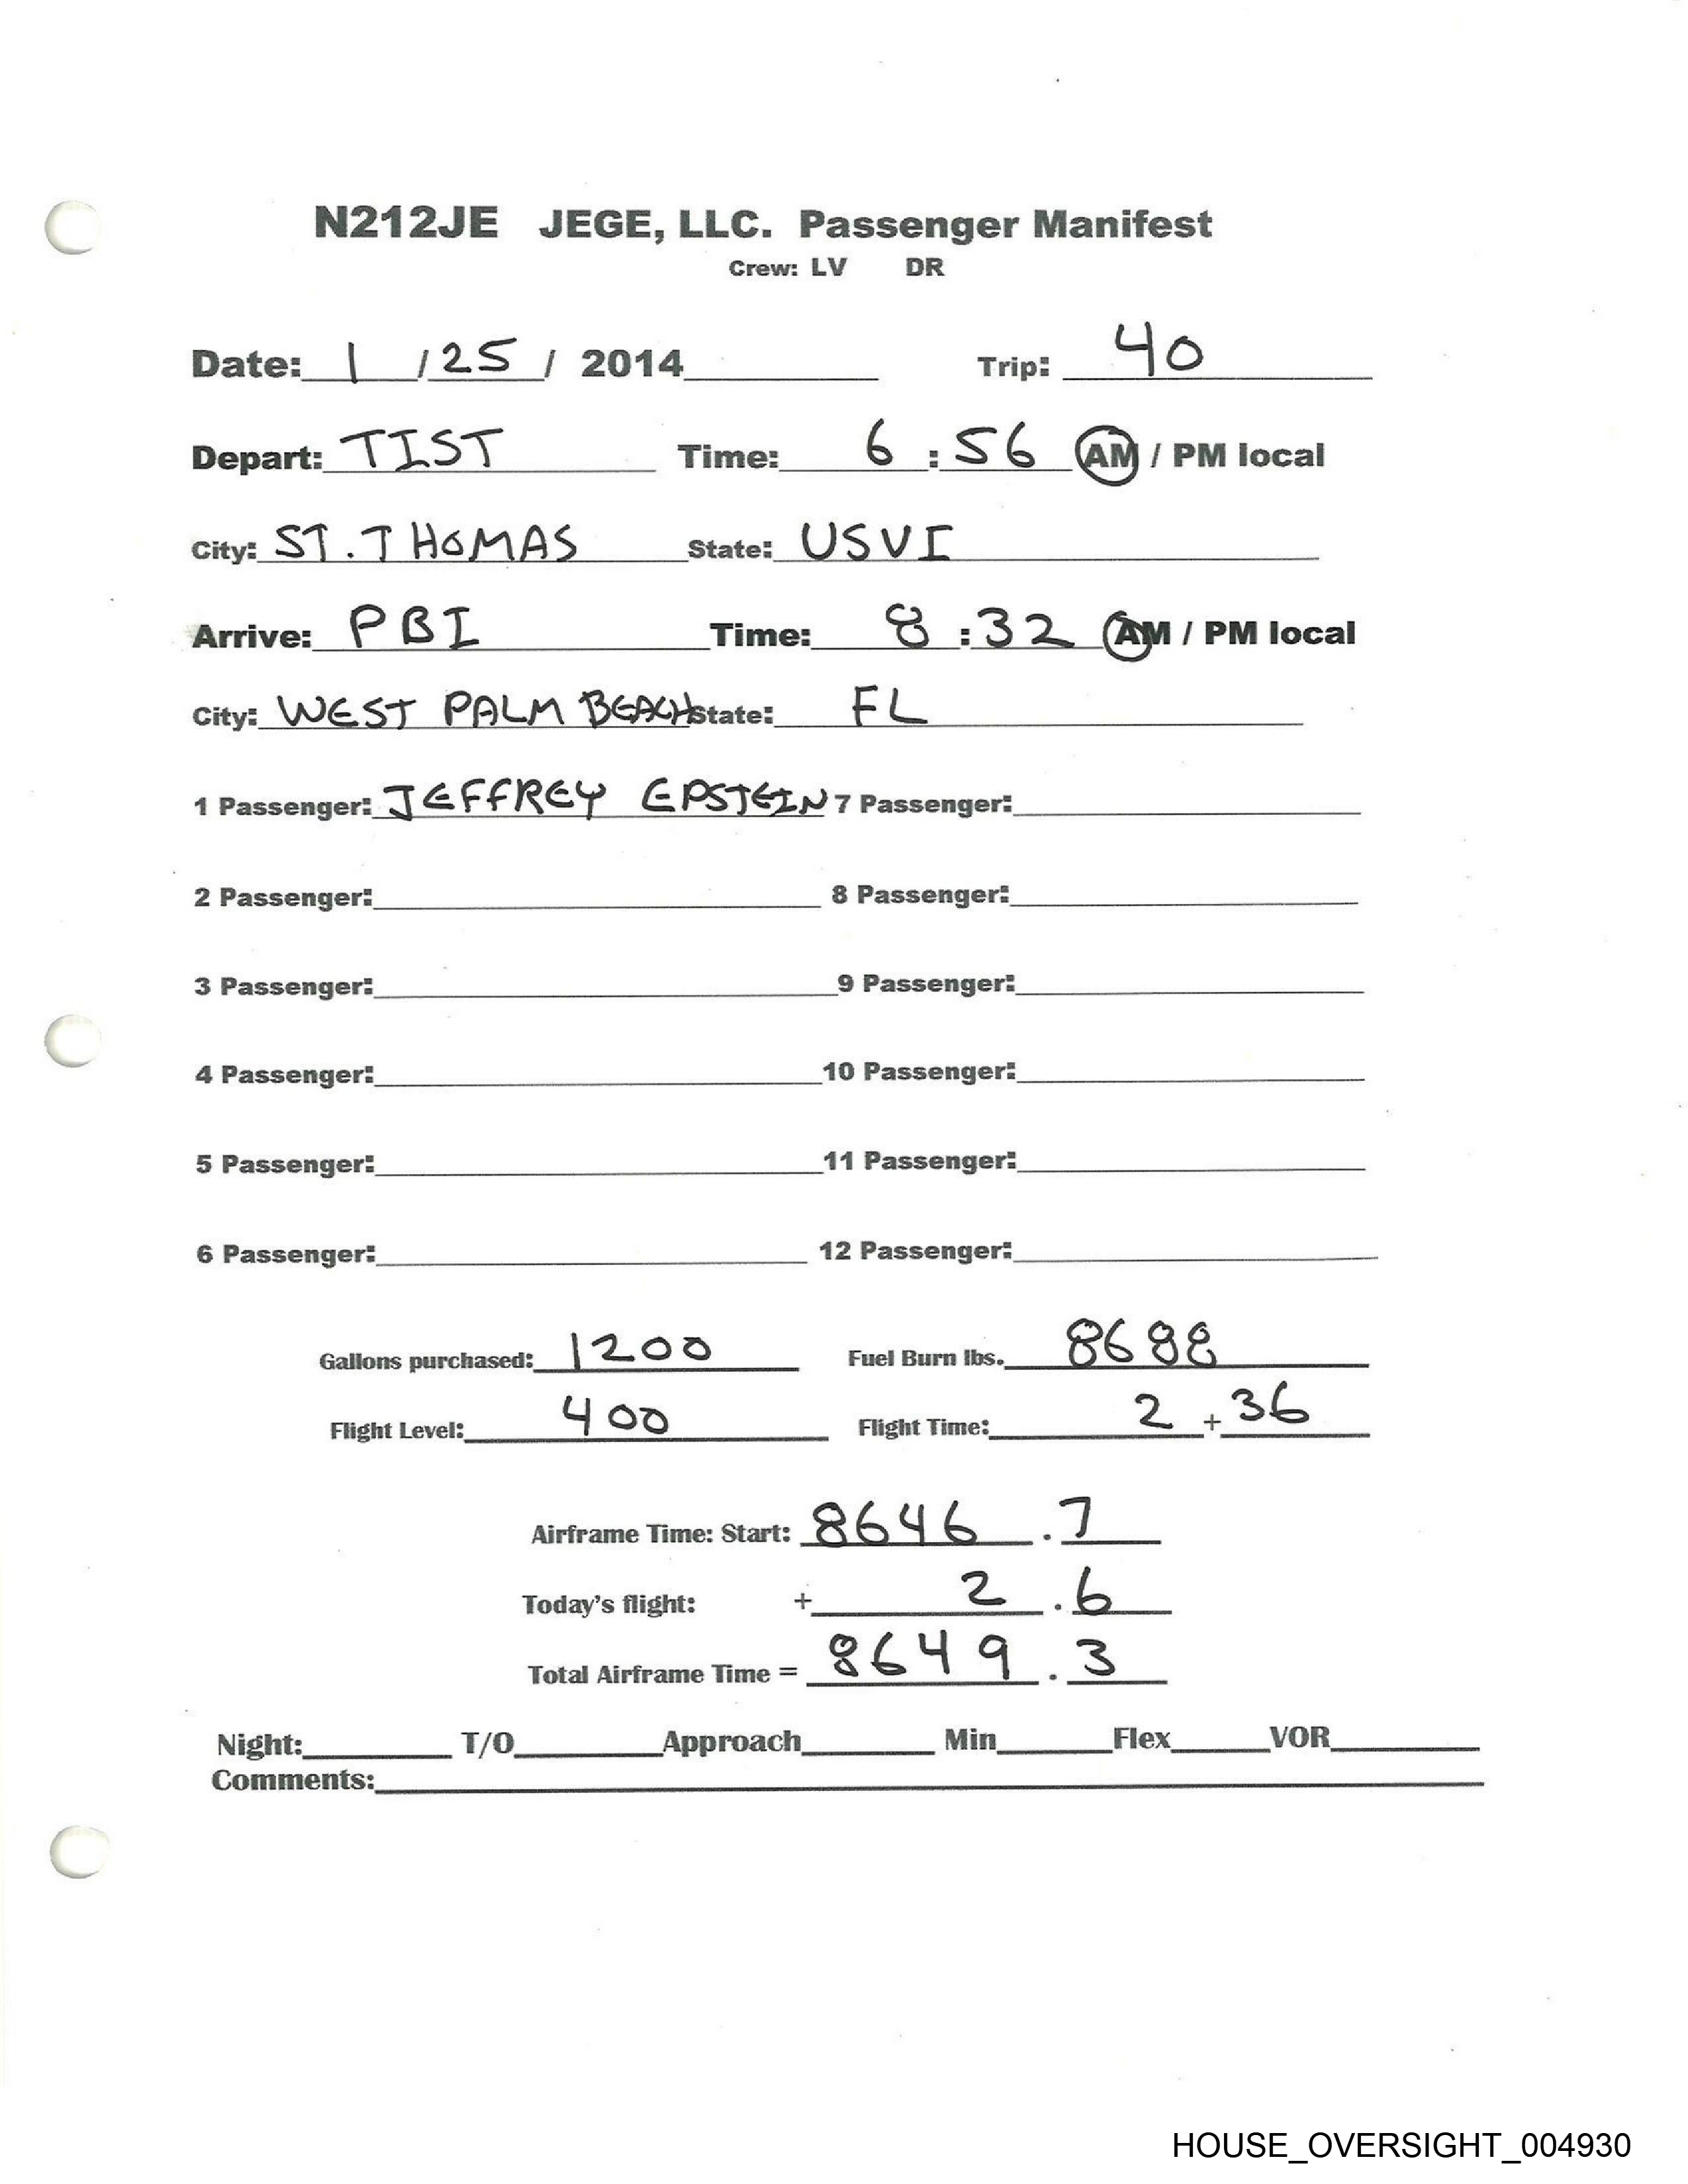 N212JE JEGE, LLC. Passenger Manifest
Crew: LV DR
Date: 1 / 25 / 2014 Trip: 40
Depart: TIST Time: 6 : 56 AM / PM local
City: ST. THOMAS State: USVI
Arrive: PBI Time: 8 : 32 AM / PM local
City: WEST PALM BEACH State: FL
1 Passenger: JEFFREY EPSTEIN 7 Passenger:
2 Passenger: 8 Passenger:
3 Passenger: 9 Passenger:
4 Passenger: 10 Passenger:
5 Passenger: 11 Passenger:
6 Passenger: 12 Passenger:
Gallons purchased: 1200 Fuel Burn lbs. 8688
Flight Level: 400 Flight Time: 2 + 36
Airframe Time: Start: 8646 . 7
Today's flight: + 2 . 6
Total Airframe Time = 8649 . 3
Night: T/O Approach Min Flex VOR
Comments:
HOUSE_OVERSIGHT_004930